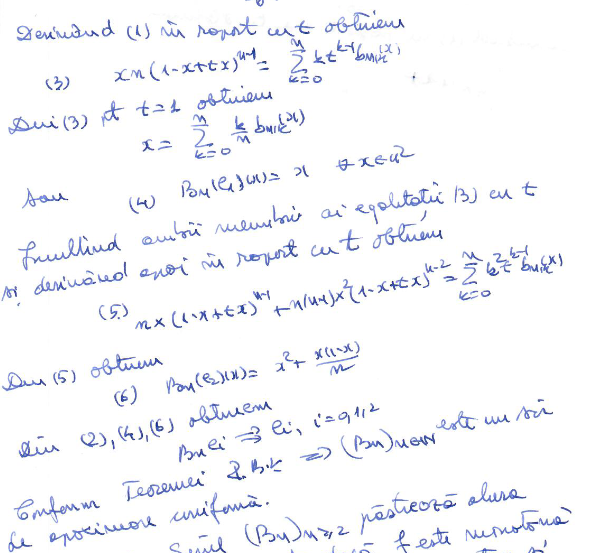 Derivând (1) în raport cu t obținem
(3) xn(1-x+tx)^{n-1} = \sum_{k=0}^{n} k t^{k-1} b_{n,k}(x)
Din (3) pt t=1 obținem
x = \sum_{k=0}^{n} \frac{k}{n} b_{n,k}(x)
sau (4) B_n(e_1)(x) = x ∀ x∈
Înmulțind ambii membrii ai egalității (3) cu t
și derivând apoi în raport cu t obținem
(5) nx(1-x+tx)^{n-1} + n(n-1)x^2(1-x+tx)^{n-2} = \sum_{k=0}^{n} k^2 t^{k-1} b_{n,k}(x)
Din (5) obținem
(6) B_n(e_2)(x) = x^2 + \frac{x(1-x)}{n}
Din (2), (4), (6) obținem
B_n e_i ⇉ e_i, i=0,1,2
Conform Teoremei B.K ⇒ (B_n)_{n∈N} este un șir
de aproximare uniformă.
Șirul (B_n)_{n≥2} păstrează alura
f este monotonă